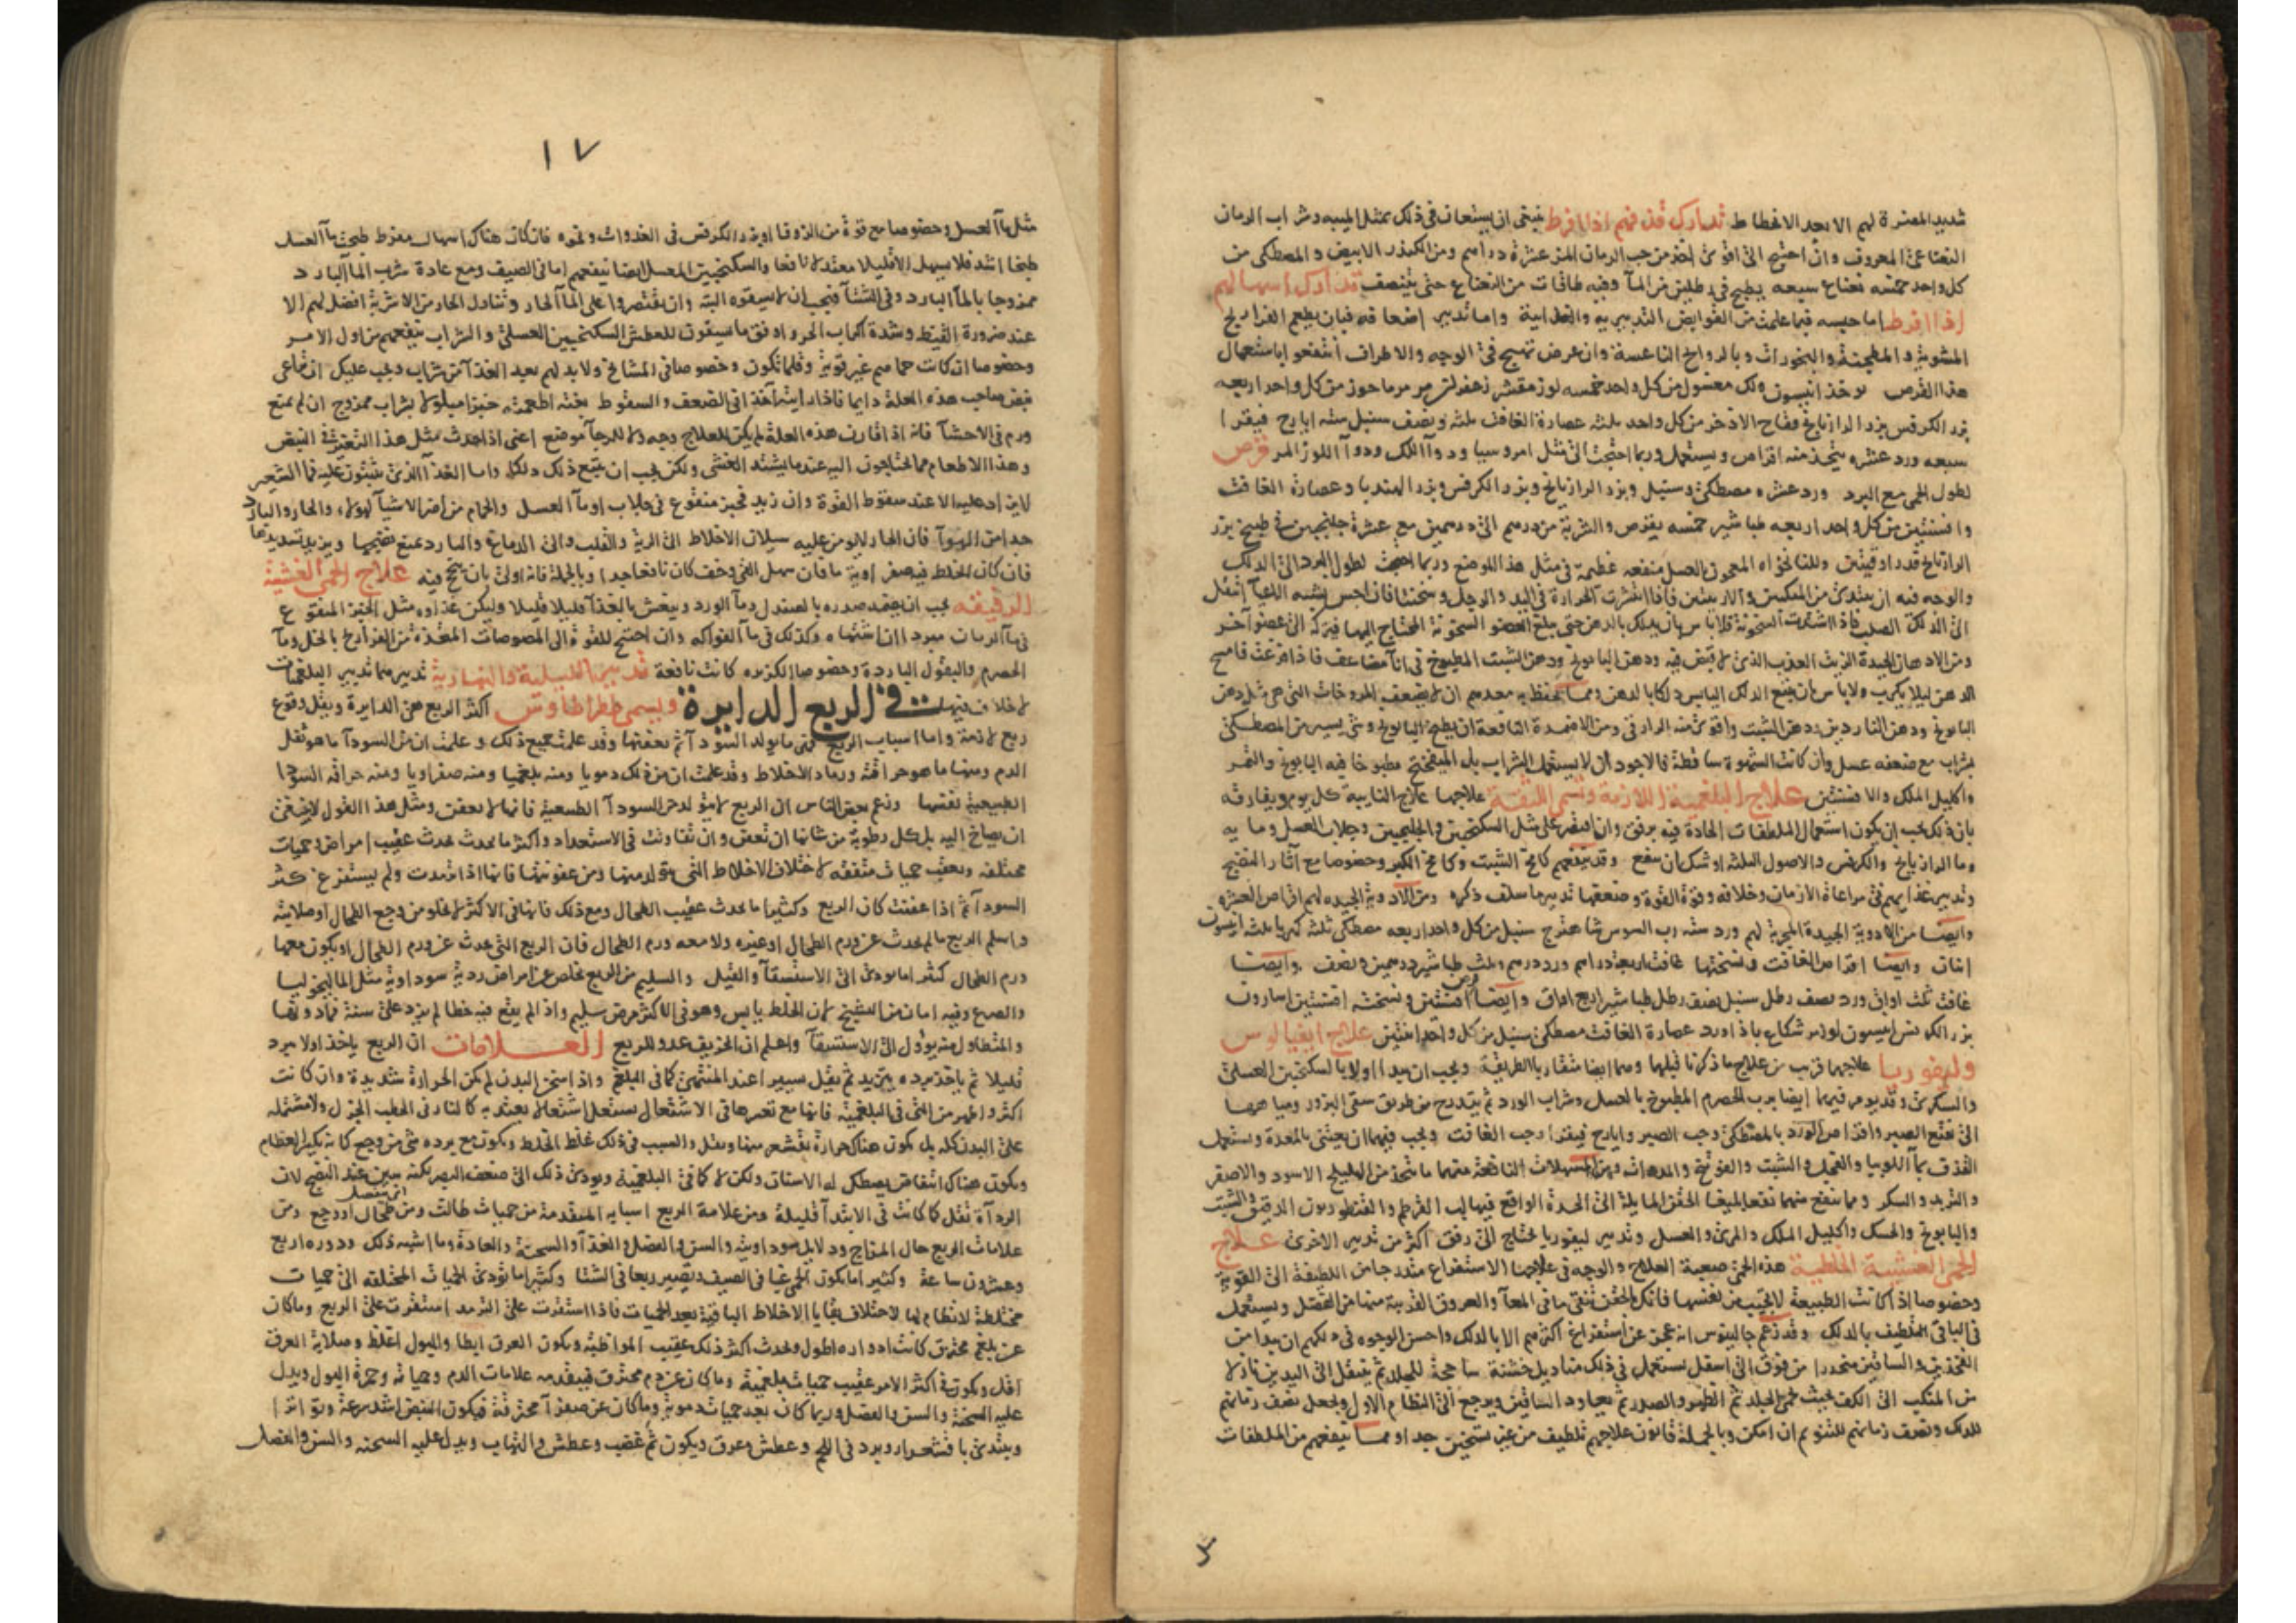 شديد المضرة لهم الا بعد الانحطاط تدارك قذفهم اذا افرط ينبغى ان يستعان فى ذلك بمثل الميبه وشراب الرمان
النعناعى المعروف وان احتيج الى اقوى اخذ من حب الرمان المز عشرة دراهم ومن الكندر الابيض والمصطكى من
كل واحد خمسه نعناع سبعه يطبخ فى رطلين من المآ وفيه طاقات من النعناع حتى ينتصف تدارك اسهالهم
اذا افرط اما حبسه فبما علمت من القوابض التدبيريه والغذائية واما تدبير اضعافه فبان يطعم الفراريج
المشوية والمطجنة والبخورات وبالروائح الناعشة وان عرض تهيج فى الوجه والاطراف انتفعوا باستعمال
هذا القرص يوخذ انيسون لك مغسول من كل واحد خمسه لوز مقشر زعفران مر مرماحوز من كل واحد اربعه
بزر الكرفس بزر الرازيانج فقاح الاذخر من كل واحد ثلثه عصارة الغافت ثلثه ونصف سنبل سته ايارج فيقرا
سبعه ورد عشره يتخذ منه اقراص ويستعمل وربما احتجت الى مثل امروسيا ودوآ اللك ودوآ اللوز المر قرص
لطول الحمى مع البرد ورد عشره مصطكى وسنبل وبزر الرازيانج وبزر الكرفس وبزر الهندبا وعصارة الغافت
وافسنتين من كل واحد اربعه طباشير خمسه يقرص والشربة من درهم الى درهمين مع عشرة جلنجبين فى طبيخ بزر
الرازيانج قدر اوقيتين وللنانخواه المعجون بالعسل منفعه عظيمة فى مثل هذا الموضع وربما احتجت لطول البرد الى الدلك
والوجه فيه ان يبتدئ من المنكبين والاربيتين فاذا انتشرت الحرارة فى اليد والرجل وسخنتا فان احس بشبه الاعيآ انتقل
الى الدلك الصلب فاذا اشتدت السخونة فلا باس بان يدلك بالدهن حتى يبلغ العضو السخونة المحتاج اليها فيتركه الى عضو آخر
ومن الادهان الجيدة الزيت العذب الذى لا قبض فيه ودهن البابونج ودهن الشبت المطبوخ فى انآ مضاعف فاذا فرغت فامسح
الدهن ليلا يكرب ولا باس بان يتبع الدلك اليابس دلكا بالدهن ومما يحفظ به معدهم ان لا يضعف المروخات التى هى مثل دهن
البابونج ودهن الناردين ودهن الشبت واقوى منه الرازقى ومن الاضمدة النافعة ان يطبخ البابونج وشى يسير من المصطكى
بشراب مع ضعفه عسل وان كانت الشهوة ساقطة فالاجود ان لا يستعمل الشراب بل الميفختج مطبوخا فيه البابونج والتمر
واكليل الملك والافسنتين علاج البلغمية اللازمة وتسمى اللثقة علاجها علاج النايبة كل يوم ويفارقه
بان ذلك يجب ان يكون استعمال الملطفات الحادة فيه برفق وان اقتصر على مثل السكنجبين والجلنجبين وجلاب العسل وما يه
وما الرازيانج والكرفس والاصول الثلثة اوشك ان ينفع وقد ينفعهم كامخ الشبت وكامخ الكبر وخصوصا مع آثار النضج
وتدبير غذايهم فى مراعاة الازمان وخلافه وقوة القوة وضعفها تدبير ما سلف ذكره ومن الادوية الجيده لهم اقراص العشره
وايضا من الادوية الجيدة المجربة لهم ورد سته رب السوس شاهترج سنبل من كل واحد اربعه مصطكى ثلثة كهربا ثلثه انيسون
اثنان وايضا اقراص الغافت ونسختها غافت اربعة دراهم ورد درهم وثلث طباشير درهمين ونصف وايضا
غافت ثلث اواق ورد نصف رطل سنبل نصف رطل طباشير اربع اواق وايضا قرص افسنتين ونسخته افسنتين اسارون
بزر الكرفس انيسون لوز مر شكاع باذاورد عصارة الغافت مصطكى سنبل من كل واحد اثنين علاج ايفيالوس
وليفوريا علاجهما قريب من علاج ما ذكرنا قبلها وهما ايضا متقاربا الطريقة ويجب ان يبدا اولا بالسكنجبين العسلى
والسكرى وقد يومر فيهما ايضا برب الحصرم المطبوخ بالعسل وشراب الورد ثم يتدرج من طريق سقى البزور ومياهها
الى نقيع الصبر واقراص الورد بالمصطكى وحب الصبر وايارج فيقرا وحب الغافت ويجب فيهما ان يعتنى بالمعدة ويستعمل
القذف بمآ اللوبيا والفجل والشبت والفوتنج والمدرات ومن المسهلات النافعة منهما ما يتخذ من الهليلج الاسود والاصفر
والتربد والسكر ومما ينفع منهما نفعا بليغا الحقن المايلة الى الحدة الواقع فيها لب القرطم والقنطوريون الدقيق والشبت
والبابونج والحسك واكليل الملك والمرى والعسل وتدبير ليفوريا يحتاج الى رفق اكثر من تدبير الاخرى علاج
الحمى الغشيية الخلطية هذه الحمى صعبة العلاج والوجه فى علاجها الاستفراغ متدرجا من اللطيفة الى القوية
وخصوصا اذا كانت الطبيعة لا تجيب من نفسها فانك بالحقن تنقى ما فى المعآ والعروق القريبة منها من الفضل ويستعمل
فى الباقى التلطيف بالدلك وقد زعم جالينوس انه عجز عن استفراغ اكثرهم الا بالدلك واحسن الوجوه فى دلكهم ان يبدا من
الفخذين والساقين منحدرا من فوق الى اسفل يستعمل فى ذلك مناديل خشنة ساحجة للجلد ثم ينتقل الى اليدين نازلا
من المنكب الى الكف بحيث يحمر الجلد ثم الظهر والصدر ثم يعاود الساقين ويرجع الى النظام الاول ويجعل نصف زمانهم
للدلك ونصف زمانهم للتنويم ان امكن وبالجملة قانون علاجهم تلطيف من غير تسخين جدا ومما ينفعهم من الملطفات
مثل
١٧
مثل مآ العسل وخصوصا مع قوة من الزوفا او بزر الكرفس فى الغدوات ونحوه فان كان هناك اسهال مفرط طبخت مآ العسل
طبخا اشد فلا يسهل الا قليلا معتدلا نافعا والسكنجبين المعسل ايضا ينفعهم اما فى الصيف ومع عادة شرب المآ البارد
ممزوجا بالمآ البارد وفى الشتآ فيجب ان لا يسقوه البتة وان يقتصروا على المآ الحار وتناول الحار من الاشربة افضل لهم الا
عند ضرورة القيظ وشدة اكراب الحر واوفق ما يسقون للعطش السكنجبين العسلى والشراب ينفعهم من اول الامر
وخصوصا ان كانت حماهم غير قوية وقلما تكون وخصوصا فى المشايخ ولا بد لهم بعد الغذآ من شراب ويجب عليك ان تراعى
نبض صاحب هذه العلة دايما فاذا رايته آخذا فى الضعف والسقوط بخته اطعمته خبزا مبلولا بشراب ممزوج ان لم يمنع
ورم فى الاحشآ فانه اذا قارن هذه العلة لم يكن للعلاج وجه ولا للرجآ موضع اعنى اذا حدث مثل هذا التغير فى النبض
وهذا الاطعام مما يحتاجون اليه عندما يشتد الغشى ولكن يجب ان يتبع ذلك دلكا واما الغذآ الذى يثبتون عليه فمآ الشعير
لا يزاد عليه الا عند سقوط القوة وان زيد فخبز منقوع فى جلاب او مآ العسل والحمام من اضر الاشيآ لهولاء والحار والبارد
جدا من الهوآ فان الحار لا يومن عليه سيلان الاخلاط الى الرية والقلب والى الدماغ والبارد يمنع نضجها ويزيد تسديدها
فان كان الخلط فيه صفراوية ما فان سهل القى وخف كان نافعا جدا وبالجملة فانه اولى بان ينجح فيه علاج الحمى الغشيية
الرقيقه يجب ان يضمد صدره بالصندل ومآ الورد وينعش بالغذآ قليلا قليلا وليكن غذاوه مثل الخبز المنقوع
فى مآ الرمان مبردا ان اشتهاه وكذلك فى مآ الفواكه وان احتيج للقوة الى المصوصات المتخذة من الفراريج بالخل ومآ
الحصرم والبقول الباردة وخصوصا الكزبره كانت نافعة تدبير الليلية والنهارية تدبيرهما تدبير البلغميات
لا خلاف فيها فى الربع الدايرة ويسمى طيطراطاوس اكثر الربع هى الدايرة ويقل وقوع
ربع لازمة واما اسباب الربع فهى ما يولد السودآ ثم يعفنها وقد علمت جميع ذلك وعلمت ان من السودآ ما هو ثقل
الدم ومنها ما هو حراقة ورماد الاخلاط وقد علمت ان من ذلك دمويا ومنه بلغميا ومنه صفراويا ومنه حراقة السودا
الطبيعية نفسها وزعم بعض الناس ان الربع لا يتولد من السودآ الطبيعية فانها لا تعفن ومثل هذا القول لا ينبغى
ان يصاخ اليه بل كل رطوبة من شانها ان تعفن وان تفاوتت فى الاستعداد واكثر ما يحدث يحدث عقيب امراض وحميات
مختلفه وبعقب حميات متفقه لاختلاف الاخلاط التى يتولد منها ومن عفونتها فانها اذا ترمدت ولم يستفرغ كثر
السودآ ثم اذا عفنت كان الربع وكثيرا ما يحدث عقيب الطحال ومع ذلك فانها فى الاكثر لا يخلو من وجع الطحال او صلابته
واسلم الربع ما لم يحدث عن ورم الطحال او غيره ولا معه ورم الطحال فان الربع التى يحدث عن ورم الطحال او يكون معها
ورم الطحال كثيرا ما يودى الى الاستسقآ والقيل والسليم من الربع يخلص عن امراض ردية سوداوية مثل الماليخوليا
والصرع وفيه امان من التشنج لان الخلط يابس وهو فى الاكثر مرض سليم واذا لم يقع فيه خطا لم يزد على سنة فما دونها
والمتطاول منه يؤول الى الاستسقآ واعلم ان الخريف عدو للربع العلامات ان الربع ياخذ اولا ببرد
قليلا ثم ياخذ برده يتزيد ثم يقل يسيرا عند المنتهى كما فى البلغم واذا سخن البدن لم يكن الحرارة شديدة وان كانت
اكثر واظهر من التى فى البلغمية فانها مع تعسرها فى الاشتعال يشتعل اشتعالا يعتد به كالنار فى الحطب الجزل ولا مشتمله
على البدن كله بل يكون هناك حرارة يقشعر منها ويقل والسبب فى ذلك غلظ الخلط ويكون مع برده شى من وجع كانه يكسر العظام
ويكون هناك انتفاض يصطك له الاسنان ولكن لا كما فى البلغمية ويودى ذلك الى ضعف البصر
علامات الربع حال المزاج ودلايل سوداويته والسن والفصل والغذآ والسحنة والعادة وما اشبه ذلك ودوره اربع
وعشرون ساعة وكثيرا ما يكون الحمى غبا فى الصيف ويصير ربعا فى الشتا وكثيرا ما تودى الحميات المختلفه الى حميات
مختلطة لا نظام لها لاختلاف بقايا الاخلاط الباقية بعد الحميات فاذا استقرت على الترمد استقرت على الربع وما كان
عن بلغم محترق كانت ادواره اطول ويحدث اكثر ذلك عقيب المواظبة ويكون العرق ابطا والبول اغلظ وصلابة العرق
اقل ويكون فى اكثر الامر عقيب حميات بلغمية وما كان عن دم محترق فيتقدمه علامات الدم وحمياته وحمرة البول ويدل
عليه السحنة والسن والفصل وربما كان بعد حميات دموية وما كان عن صفرآ محترقة فيكون النبض اشد سرعة وتواترا
ويبتدئ باقشعرار وبرد فى اللحم وعطش وعرق ويكون ثم غضب وعطش والتهاب ويدل عليه السحنه والسن والفصل